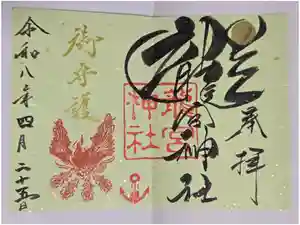 奉拝
龍宮神社
龍宮
神社
御守護
令和八年四月二十五日